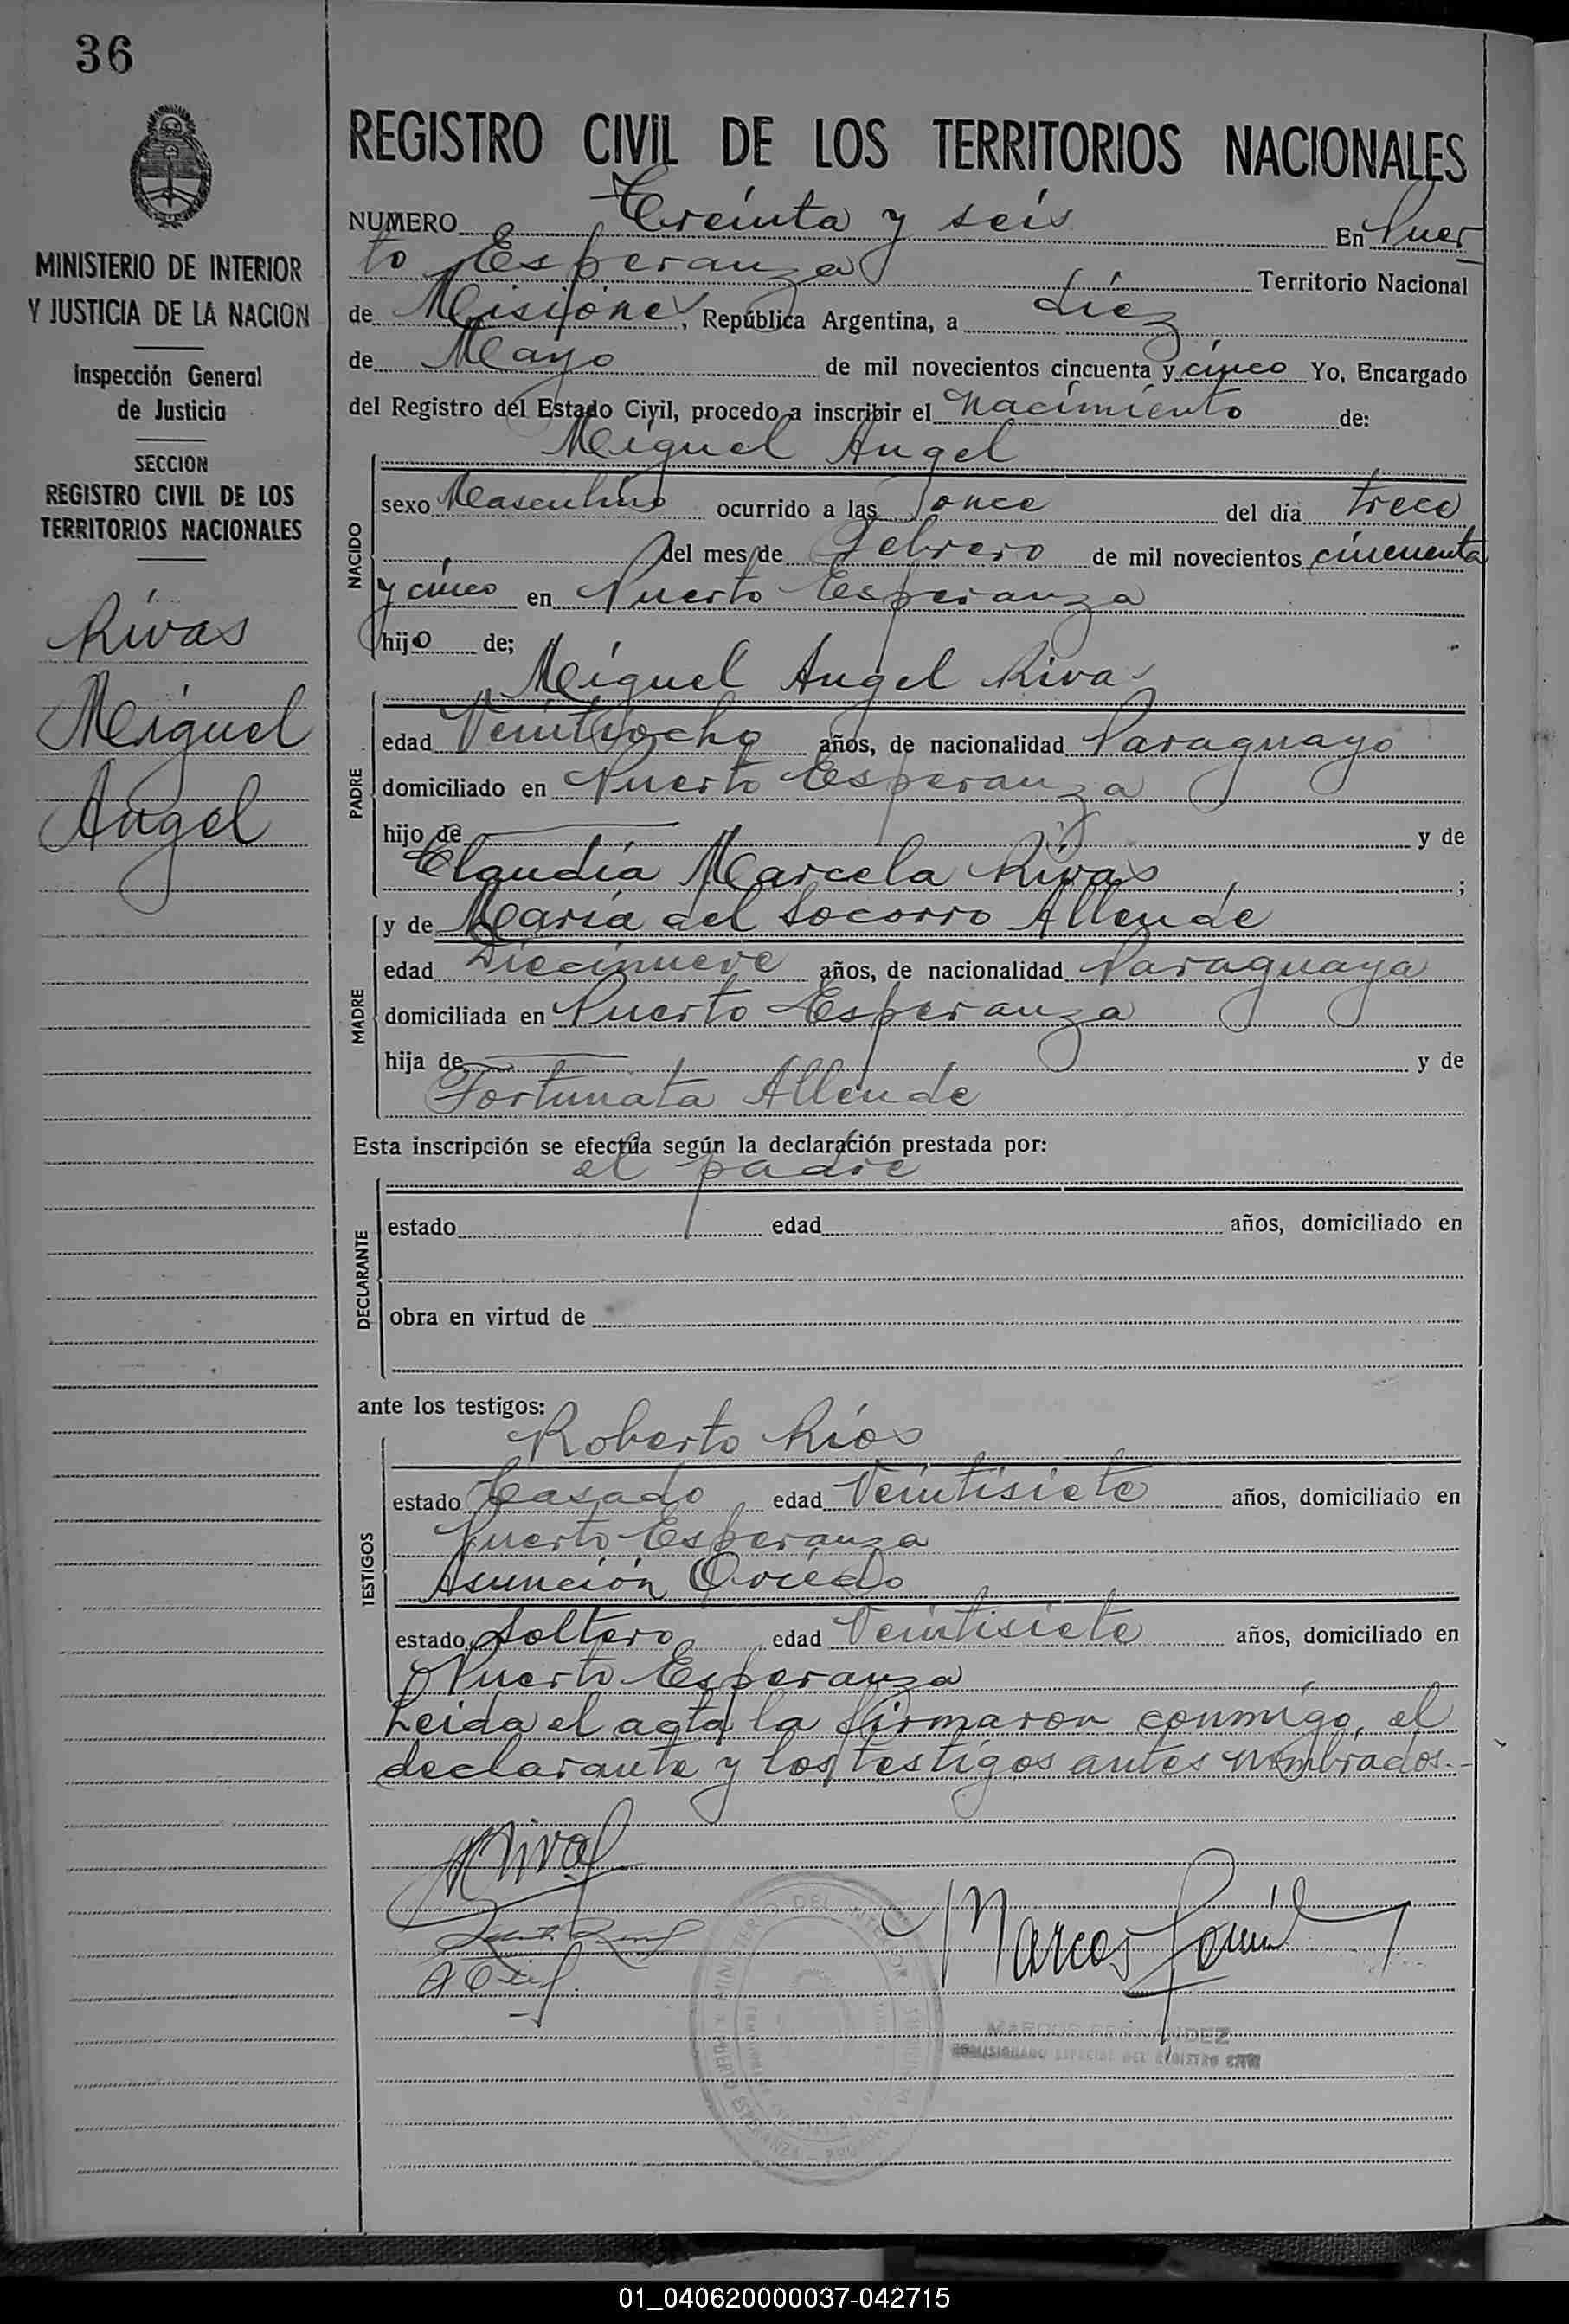 36
MINISTERIO DE INTERIOR
Y JUSTICIA DE LA NACION
Inspección General
de Justicia
SECCION
REGISTRO CIVIL DE LOS
TERRITORIOS NACIONALES
Rivas
Miguel
Angel
REGISTRO CIVIL DE LOS TERRITORIOS NACIONALES
NUMERO Treinta y seis En Puer
to Esperanza Territorio Nacional
de Misiones, República Argentina, a diez
de Mayo de mil novecientos cincuenta y cinco Yo, Encargado
del Registro del Estado Civil, procedo a inscribir el Nacimiento de:
Miguel Angel
NACIDO
sexo Masculino ocurrido a las once del día trece
del mes de Febrero de mil novecientos cincuenta
y cinco en Puerto Esperanza
hijo de;
Miguel Angel Rivas
PADRE
edad Veintiocho años, de nacionalidad Paraguayo
domiciliado en Puerto Esperanza
hijo de y de
Claudia Marcela Rivas ;
y de María del Socorro Allende
MADRE
edad Diecinueve años, de nacionalidad Paraguaya
domiciliada en Puerto Esperanza
hija de y de
Fortunata Allende
Esta inscripción se efectúa según la declaración prestada por:
el padre
DECLARANTE
estado edad años, domiciliado en
obra en virtud de
ante los testigos:
Roberto Ríos
TESTIGOS
estado Casado edad Veintisiete años, domiciliado en
Puerto Esperanza
Asunción Oviedo
estado Soltero edad Veintisiete años, domiciliado en
Puerto Esperanza
Leida el acta la firmaron conmigo, el
declarante y los testigos antes nombrados.-
Rivas
Marcos
MARCOS FERNANDEZ
COMISIONADO ESPECIAL DEL REGISTRO CIVIL
MINISTERIO DEL INTERIOR
PUERTO ESPERANZA
01_040620000037-042715